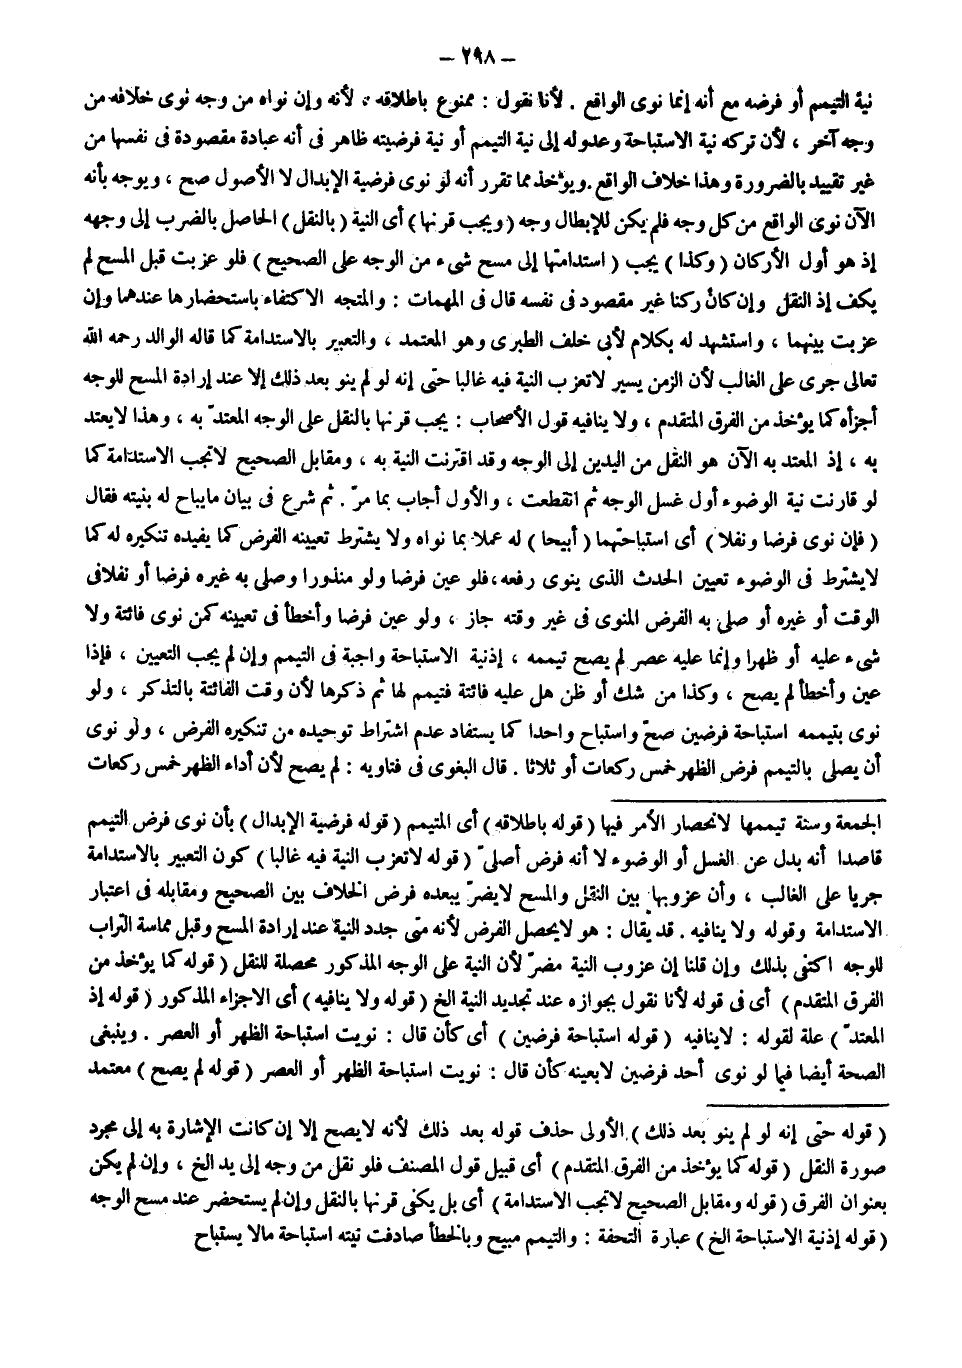 – ٢٩٨ –
نية التيمم أو فرضه مع أنه إنما نوى الواقع . لأنا نقول : ممنوع باطلاقه ، لأنه وإن نواه من وجه نوى خلافه من
وجه آخر ، لأن تركه نية الاستباحة وعدوله إلى نية التيمم أو نية فرضيته ظاهر فى أنه عبادة مقصودة فى نفسها من
غير تقييد بالضرورة وهذا خلاف الواقع . ويؤخذ مما تقرر أنه لو نوى فرضية الإبدال لا الأصول صح ، ويوجه بأنه
الآن نوى الواقع من كل وجه فلم يكن للإبطال وجه ( ويجب قرنها ) أى النية ( بالنقل ) الحاصل بالضرب إلى وجهه
إذ هو أول الأركان ( وكذا ) يجب ( استدامتها إلى مسح شىء من الوجه على الصحيح ) فلو عزبت قبل المسح لم
يكف إذ النقل وإن كان ركنا غير مقصود فى نفسه قال فى المهمات : والمتجه الاكتفاء باستحضارها عندهما وإن
عزبت بينهما ، واستشهد له بكلام لأبى خلف الطبرى وهو المعتمد ، والتعبير بالاستدامة كما قاله الوالد رحمه الله
تعالى جرى على الغالب لأن الزمن يسير لاتعزب النية فيه غالبا حتى إنه لو لم ينو بعد ذلك إلا عند إرادة المسح للوجه
أجزأه كما يؤخذ من الفرق المتقدم ، ولا ينافيه قول الأصحاب : يجب قرنها بالنقل على الوجه المعتدّ به ، وهذا لايعتد
به ، إذ المعتد به الآن هو النقل من اليدين إلى الوجه وقد اقترنت النية به ، ومقابل الصحيح لاتجب الاستدامة كما
لو قارنت نية الوضوء أول غسل الوجه ثم انقطعت ، والأول أجاب بما مرّ . ثم شرع فى بيان مايباح له بنيته فقال
( فإن نوى فرضا ونفلا ) أى استباحتهما ( أبيحا ) له عملا بما نواه ولا يشترط تعيينه الفرض كما يفيده تنكيره له كما
لايشترط فى الوضوء تعيين الحدث الذى ينوى رفعه، فلو عين فرضا ولو منذورا وصلى به غيره فرضا أو نفلا فى
الوقت أو غيره أو صلى به الفرض المنوى فى غير وقته جاز ، ولو عين فرضا وأخطأ فى تعيينه كمن نوى فائتة ولا
شىء عليه أو ظهرا وإنما عليه عصر لم يصح تيممه ، إذنية الاستباحة واجبة فى التيمم وإن لم يجب التعيين ، فإذا
عين وأخطأ لم يصح ، وكذا من شك أو ظن هل عليه فائتة فتيمم لها ثم ذكرها لأن وقت الفائتة بالتذكر ، ولو
نوى بتيممه استباحة فرضين صحّ واستباح واحدا كما يستفاد عدم اشتراط توحيده من تنكيره الفرض ، ولو نوى
أن يصلى بالتيمم فرض الظهر خمس ركعات أو ثلاثا . قال البغوى فى فتاويه : لم يصح لأن أداء الظهر خمس ركعات
الجمعة وسنة تيممها لانحصار الأمر فيها ( قوله باطلاقه ) أى المتيمم ( قوله فرضية الإبدال ) بأن نوى فرض التيمم
قاصدا أنه بدل عن الغسل أو الوضوء لا أنه فرض أصلىّ ( قوله لاتعزب النية فيه غالبا ) كون التعبير بالاستدامة
جريا على الغالب ، وأن عزوبها بين النقل والمسح لايضرّ يبعده فرض الخلاف بين الصحيح ومقابله فى اعتبار
الاستدامة وقوله ولا ينافيه . قد يقال : هو لايحصل الفرض لأنه متى جدد النية عند إرادة المسح وقبل مماسة التراب
للوجه اكتفى بذلك وإن قلنا إن عزوب النية مضرّ لأن النية على الوجه المذكور محصلة للنقل ( قوله كما يؤخذ من
الفرق المتقدم ) أى فى قوله لأنا نقول بجوازه عند تجديد النية الخ ( قوله ولا ينافيه ) أى الاجزاء المذكور ( قوله إذ
المعتدّ ) علة لقوله : لاينافيه ( قوله استباحة فرضين ) أى كأن قال : نويت استباحة الظهر أو العصر . وينبغى
الصحة أيضا فيما لو نوى أحد فرضين لابعينه كأن قال : نويت استباحة الظهر أو العصر ( قوله لم يصح ) معتمد
( قوله حتى إنه لو لم ينو بعد ذلك ) الأولى حذف قوله بعد ذلك لأنه لايصح إلا إن كانت الإشارة به إلى مجرد
صورة النقل ( قوله كما يؤخذ من الفرق المتقدم ) أى قبيل قول المصنف فلو نقل من وجه إلى يد الخ ، وإن لم يكن
بعنوان الفرق ( قوله ومقابل الصحيح لاتجب الاستدامة ) أى بل يكفى قرنها بالنقل وإن لم يستحضر عند مسح الوجه
( قوله إذنية الاستباحة الخ ) عبارة التحفة : والتيمم مبيح وبالخطأ صادفت نيته استباحة مالا يستباح